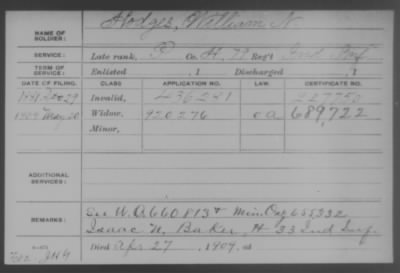 Hodges, William N.
NAME OF SOLDIER:
SERVICE: Late rank, P Co. H, 79 Reg't Ind. Inf.
TERM OF SERVICE: Enlisted , 1 Discharged , 1
DATE OF FILING. CLASS. APPLICATION NO. LAW. CERTIFICATE NO.
1881 29 Invalid, 436281
1909 May 20 Widow, 920276 689,722
Minor,
ADDITIONAL SERVICES:
REMARKS: See W.O. 660813 + Min. Orig 655332
Isaac N. Baker, H 33 Ind Inf.
Died Apr 27, 1909, at